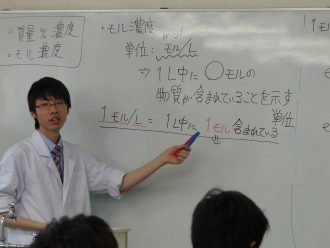 ○質量%濃度
○モル濃度
・モル濃度
mol
単位: モル/L
⇒ 1L中に○モルの
物質が含まれていることを示す
単位
1モル/L = 1L中に1モル含まれている